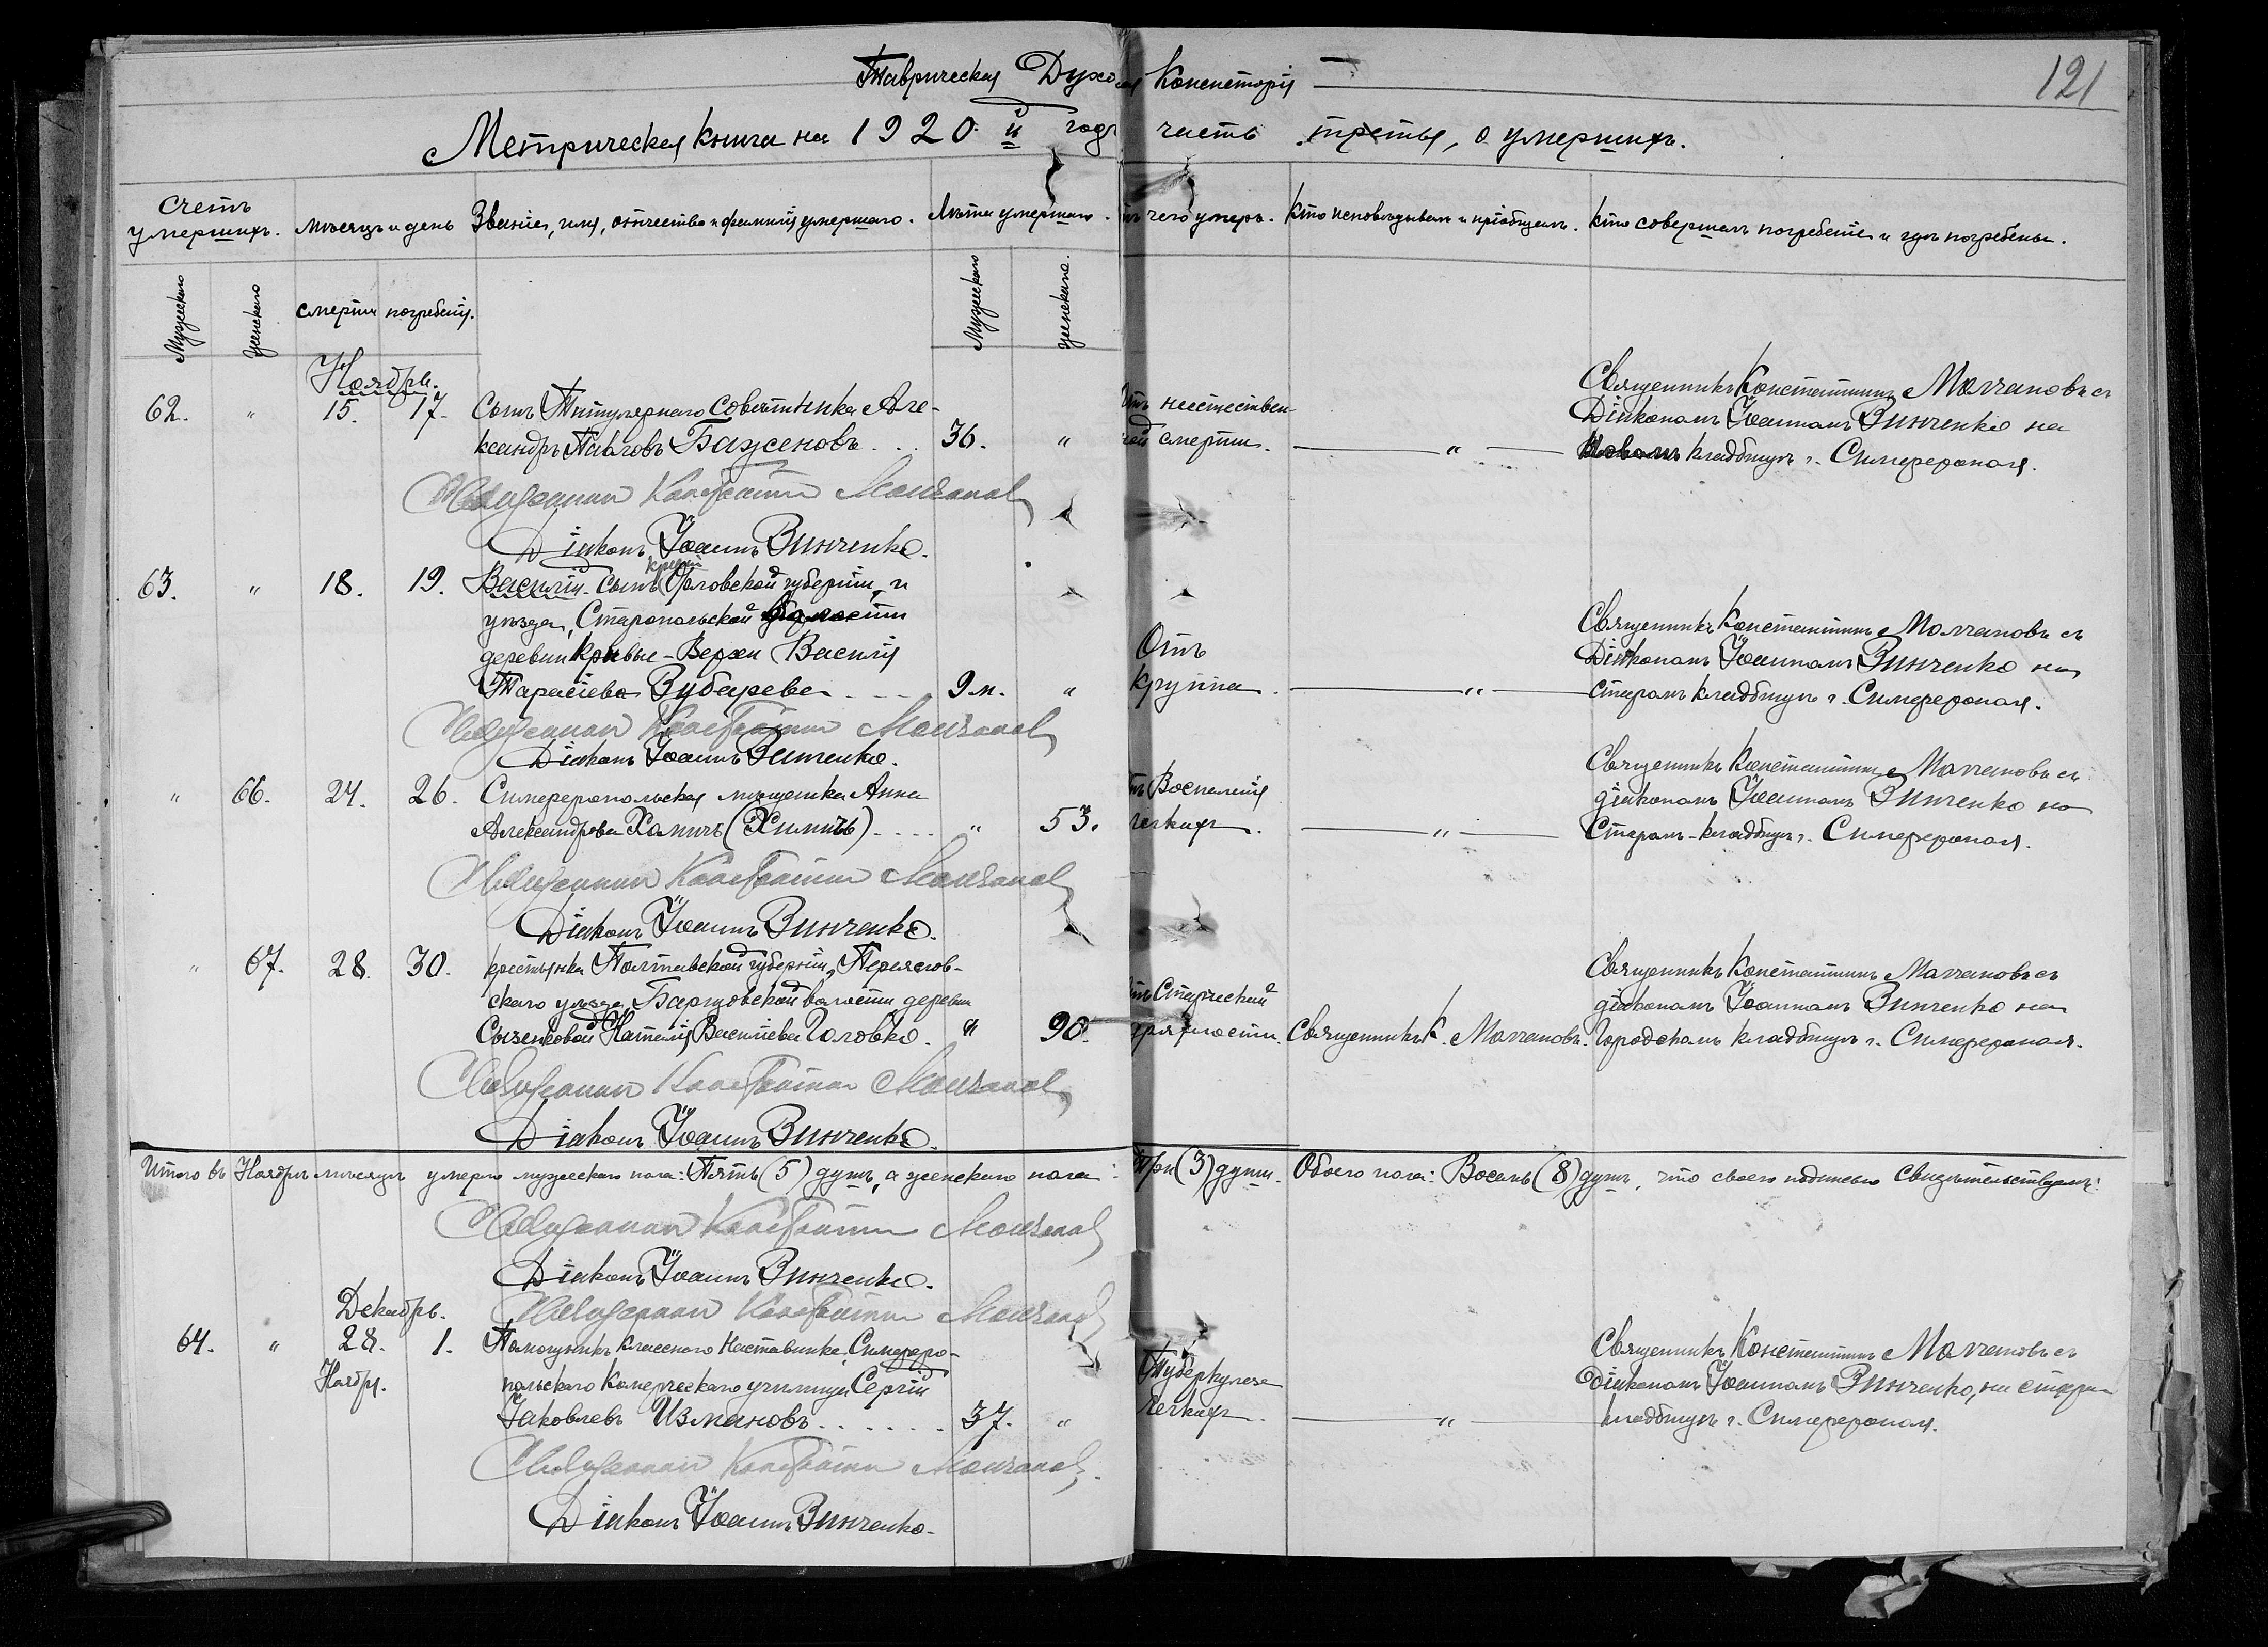 Таврическая Духо ая Консисторія
121
Метрическая книга на 1920 й годъ часть третья, о умершихъ.
Счетъ умершихъ.
Мужескаго
Женскаго
мѣсяцъ и день
смерти
погребенія.
Званіе, имя, отчество и фамилія умершаго.
Лѣта умершаго.
Мужескаго
женскаго.
тъ чего умеръ.
Кто исповѣдывалъ и пріобщалъ.
Кто совершалъ погребеніе и гдѣ погребены.
Ноябрь.
62. " 15. 17. Сынъ Титулярнаго Совѣтника Але-
ксандръ Павловъ Баженовъ . . . 36. "
тъ неестествен-
ной смерти. — " —
Священникъ Константинъ Молчановъ съ
Діакономъ Іоанномъ Зинченко на
Новомъ кладбищѣ г. Симферополя.
Священникъ Константинъ Молчановъ
Діаконъ Іоаннъ Зинченко.
63. " 18. 19. Василій сынъ крест. Орловской губерніи, и
уѣзда, Старопольской волости
деревни Кривые-Верхи Василія
Тарасіева Зубарева . . . 9 м. "
Отъ
крупа. — " —
Священникъ Константинъ Молчановъ съ
Діакономъ Іоанномъ Зинченко на
старомъ кладбищѣ г. Симферополя.
Священникъ Константинъ Молчановъ
Діаконъ Іоаннъ Зинченко.
" 66. 24. 26. Симферопольская мѣщанка Анна
Александрова Хамичъ (Химичъ) . . . . " 53.
тъ Воспаленія
легкихъ. — " —
Священникъ Константинъ Молчановъ съ
діакономъ Іоанномъ Зинченко на
Старомъ-кладбищѣ г. Симферополя.
Священникъ Константинъ Молчановъ
Діаконъ Іоаннъ Зинченко.
" 67. 28. 30. крестьянка Полтавской губерніи, Переяслов-
скаго уѣзда, волости деревни
Наталія Васильева Головко. " 90.
тъ Старческой
дряхлости. Священникъ К. Молчановъ.
Священникъ Константинъ Молчановъ съ
діакономъ Іоанномъ Зинченко на
Городскомъ кладбищѣ г. Симферополя.
Священникъ Константинъ Молчановъ
Діаконъ Іоаннъ Зинченко.
Итого въ Ноябрѣ мѣсяцѣ умерло мужескаго пола: Пять (5) душъ, а женскаго пола: Три (3) души. Обоего пола: Восемь (8) душъ, что своею подписью свидѣтельствуемъ:
Священникъ Константинъ Молчановъ
Діаконъ Іоаннъ Зинченко.
Декабрь.
Священникъ Константинъ Молчановъ
64. " 28. 1. Помощникъ класснаго Наставника, Симферо-
Ноябр. польскаго Комерческаго училища Сергій
Іаковлевъ Измановъ . . . . . . 37. "
Туберкулеза
легкихъ. — " —
Священникъ Константинъ Молчановъ съ
діакономъ Іоанномъ Зинченко, на старом
кладбищѣ г. Симферополя.
Священникъ Константинъ Молчановъ.
Діаконъ Іоаннъ Зинченко.